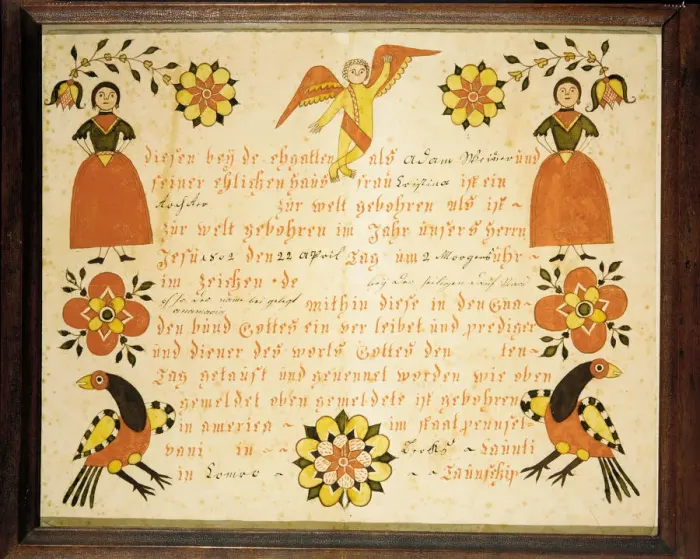 diesen beÿ de ehgatten als Adam Weiser und
seiner ehlichen haus frau Cristina ist ein
dochter zur welt gebohren als ist ~
zur welt gebohren im Jahr ünsers herrn
Jesü 1802 den 22 April Tag üm 2 Morgens ühr ~
im zeichen de bey der heiligen dauf
der name bei gelegt
anamaria mithin diese in den Gna=
den bünd Gottes ein ver leibet ünd prediger
ünd diener des worts Gottes den ten ~
Tag getaüft ünd genennet worden wie oben
gemeldet oben gemeldete ist gebohren
in america ~ im staat pennsel=
vani in ~ ~ Berks ~ Caünti
in ~ ~ ~ Taünschip